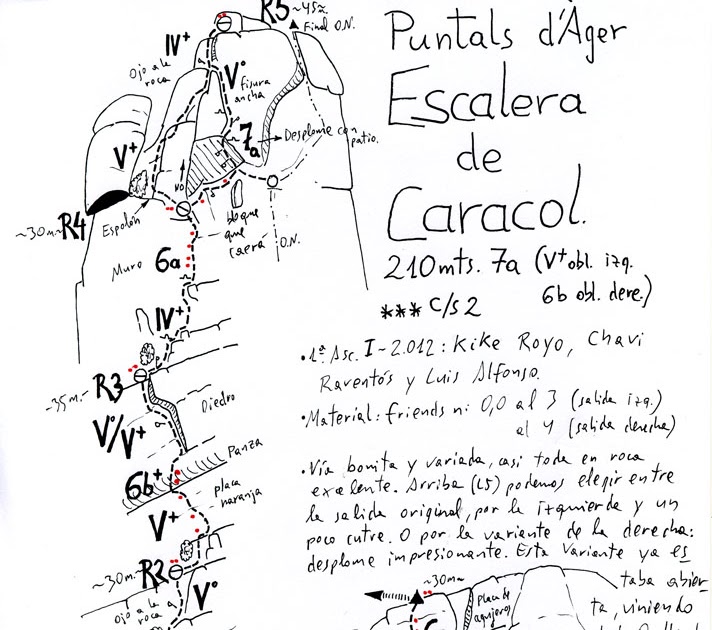 R5
~45m.
Final O.N.
IV+
Ojo a la
roca
V°
fisura
ancha
7a
Desplome con
patio.
V+
NO
~30m.
R4
Espolón
bloque
que
caerá
O.N.
Muro
6a
IV+
~35m.
R3
Diedro
V°/V+
Panza
6b+
placa
naranja
V+
~30m.
R2
Ojo a la
roca
V°
Puntals d'Àger
Escalera
de
Caracol.
210mts. 7a (V+ obl. izq.
6b obl. dere.)
*** C/S 2
•1ª Asc. I-2.012: Kike Royo, Chavi
Raventós y Luis Alfonso.
•Material: friends nº 0,0 al 3 (salida izq.)
al 4 (salida derecha)
•Vía bonita y variada, casi toda en roca
exelente. Arriba (L5) podemos elegir entre
la salida original, por la izquierda y un
poco cutre. O por la variante de la derecha:
desplome impresionante. Esta variante ya es
taba abier
ta, viniendo
~30m
placa de
agujeros